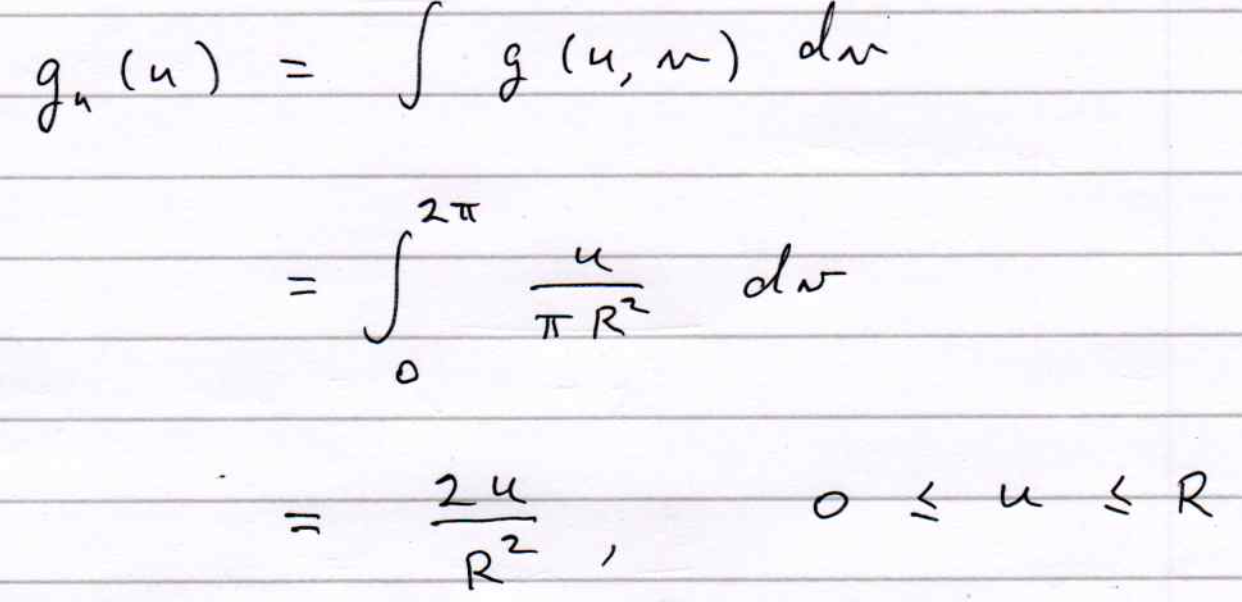 g_u (u) = ∫ g (u, v) dv
= ∫_0^{2π} u / (π R²) dv
= 2u / R² , 0 ≤ u ≤ R